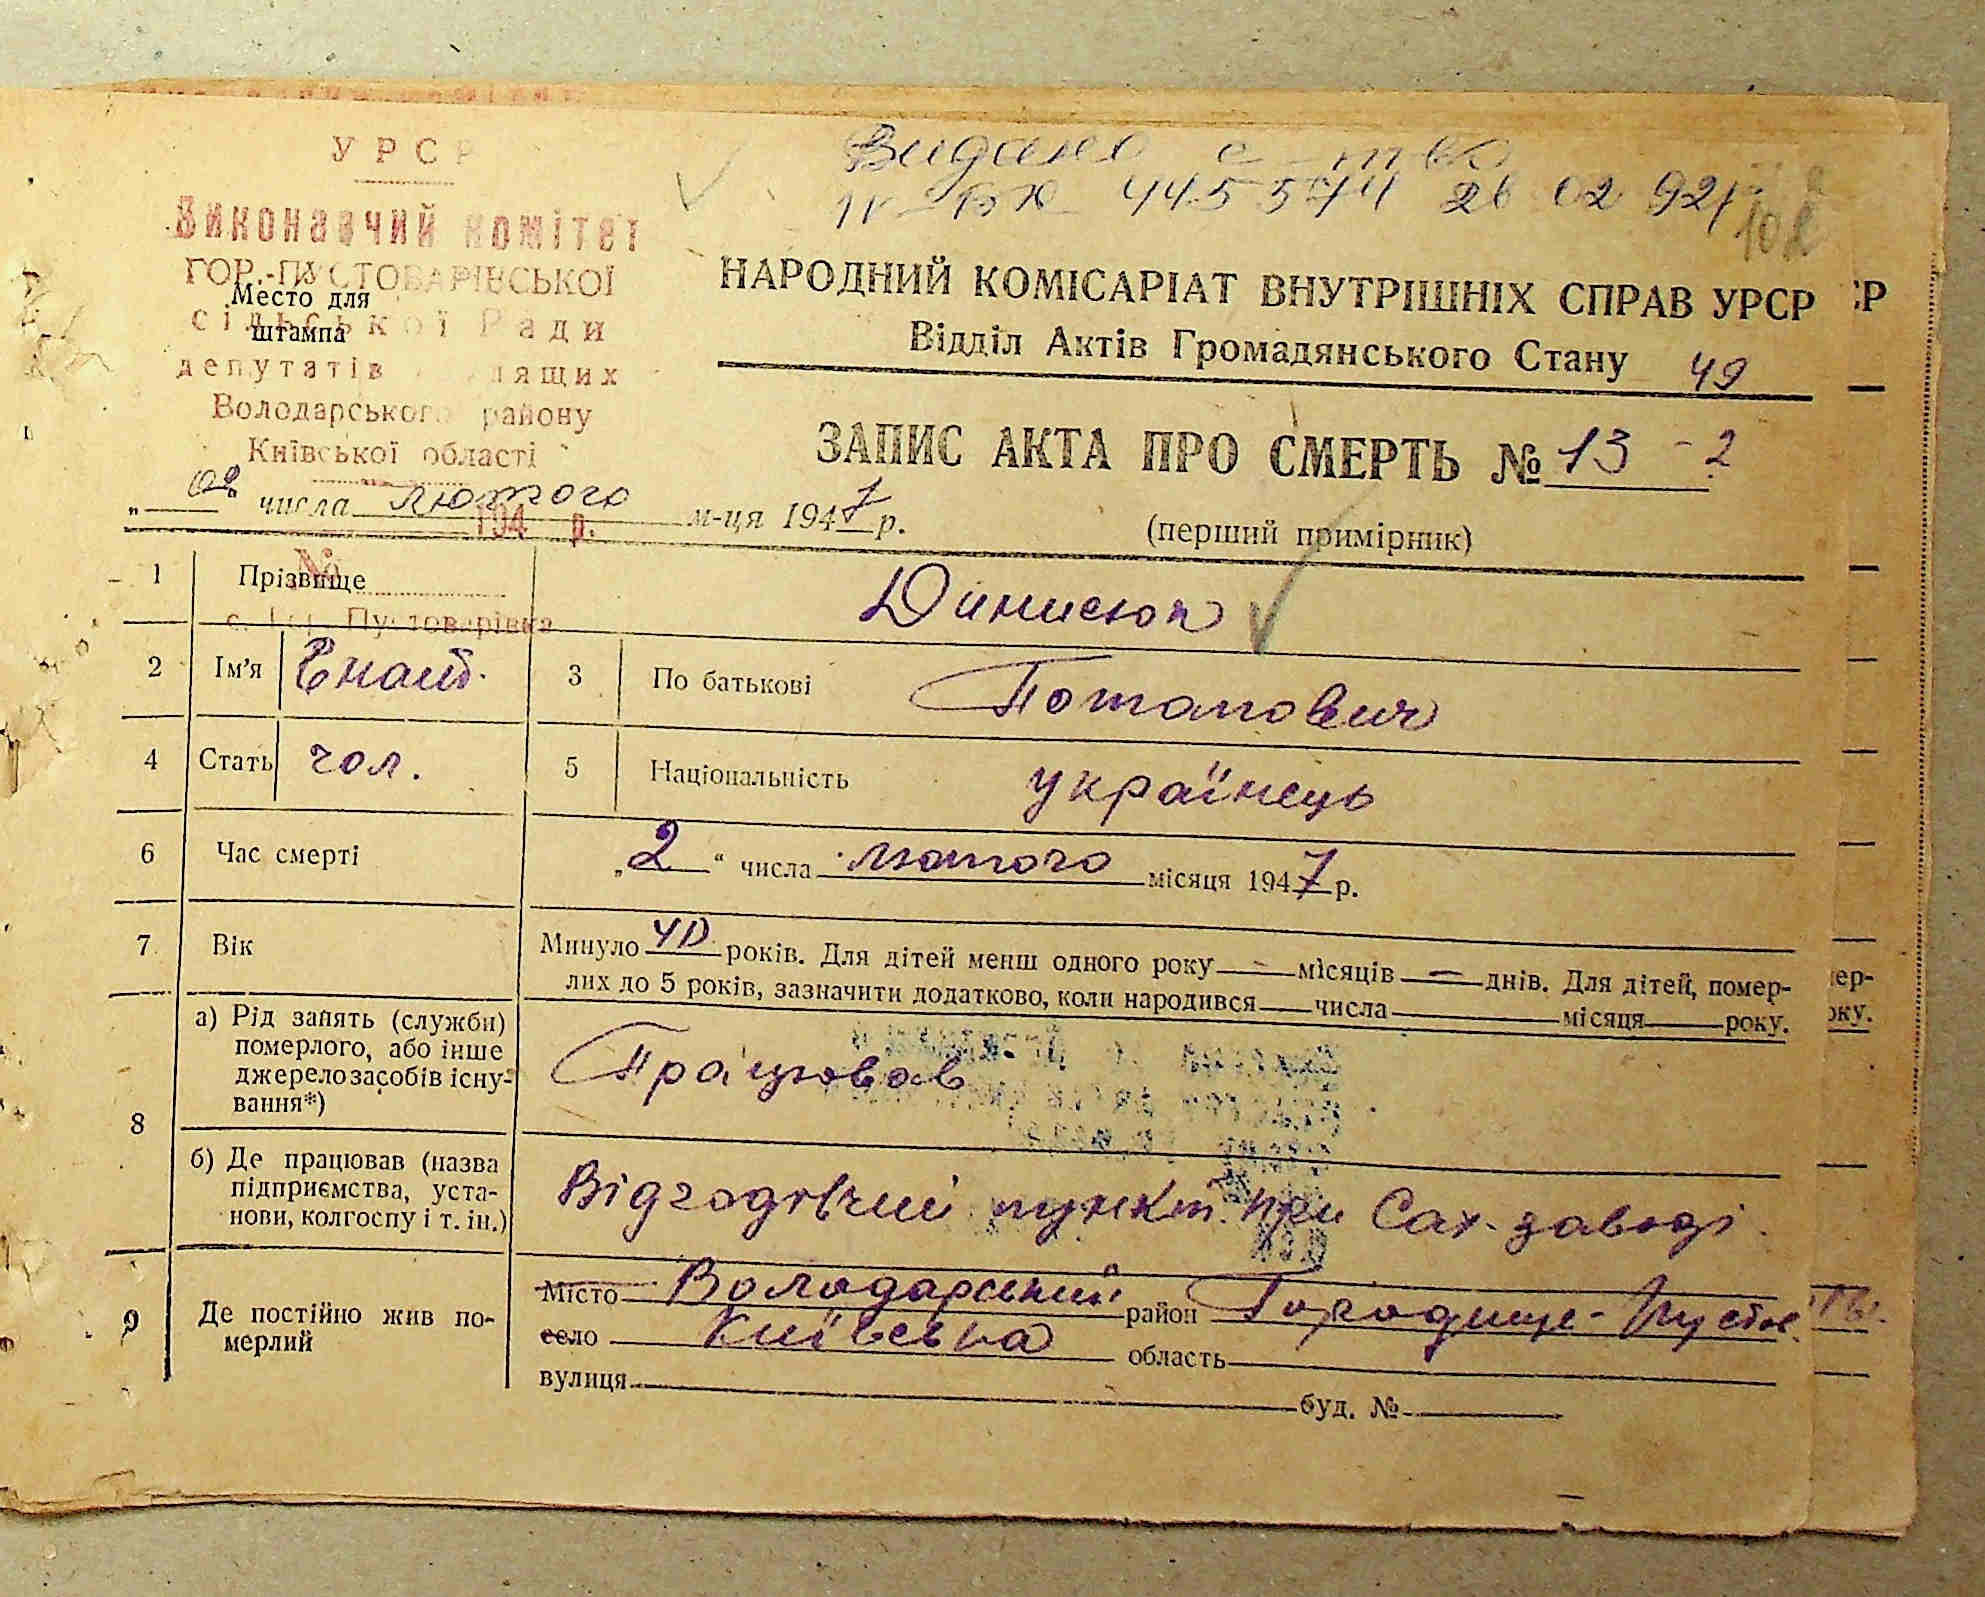 УРСР
Виконавчий комітет
ГОР.-ПУСТОВАРІВСЬКОЇ
Место для
сільської Ради
штампа
депутатів трудящих
Володарського району
Київської області
194 р.
№
с. Гор. Пустоварівка
Видано с-тво
445574 26 02 92
НАРОДНИЙ КОМІСАРІАТ ВНУТРІШНІХ СПРАВ УРСР
Відділ Актів Громадянського Стану 49
ЗАПИС АКТА ПРО СМЕРТЬ № 13 - 2
(перший примірник)
числа лютого м-ця 1947 р.
1 Прізвище Динисюк
2 Ім'я Гнат. 3 По батькові Потапович
4 Стать чол. 5 Національність українець
6 Час смерті „2“ числа лютого місяця 1947 р.
7 Вік Минуло 40 років. Для дітей менш одного року — місяців — днів. Для дітей, помер-
лих до 5 років, зазначити додатково, коли народився числа місяця року.
8 а) Рід занять (служби)
померлого, або інше
джерело засобів існу-
вання*)
Працював
б) Де працював (назва
підприємства, уста-
нови, колгоспу і т. ін.)
Відгодівчий пункт. при Сах. заводі.
9 Де постійно жив по-
мерлий
Місто Володарський район Городище-Пустов.
село Київська область
вулиця буд. №
СР
мер-
оку.